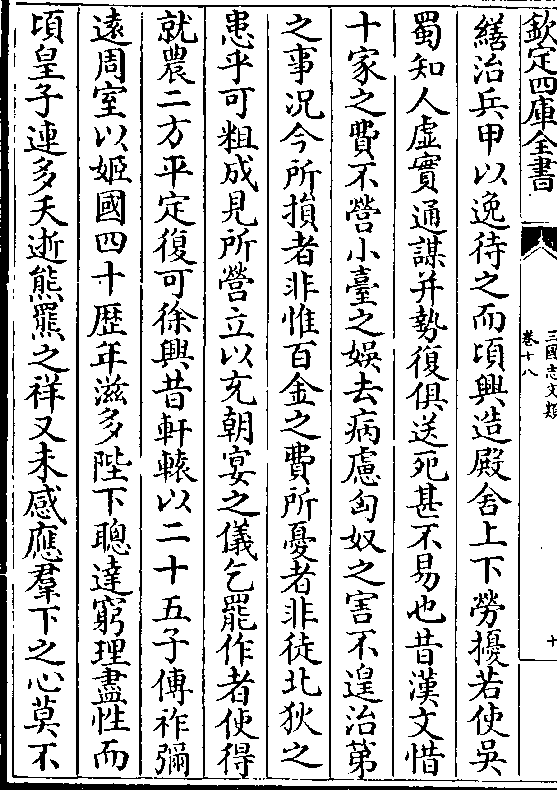 欽定四庫全書
三國志文類
卷十八
十
繕治兵甲以逸待之而頃興造殿舍上下勞擾若使吳
蜀知人虛實通謀并勢復俱送死甚不易也昔漢文惜
十家之費不營小臺之娛去病慮匈奴之害不遑治第
之事况今所損者非惟百金之費所憂者非徒北狄之
患乎可粗成見所營立以充朝宴之儀乞罷作者使得
就農二方平定復可徐興昔軒轅以二十五子傳祚彌
逺周室以姬國四十歴年滋多陛下聰達窮理盡性而
頃皇子連多夭逝熊羆之祥又未感應羣下之心莫不